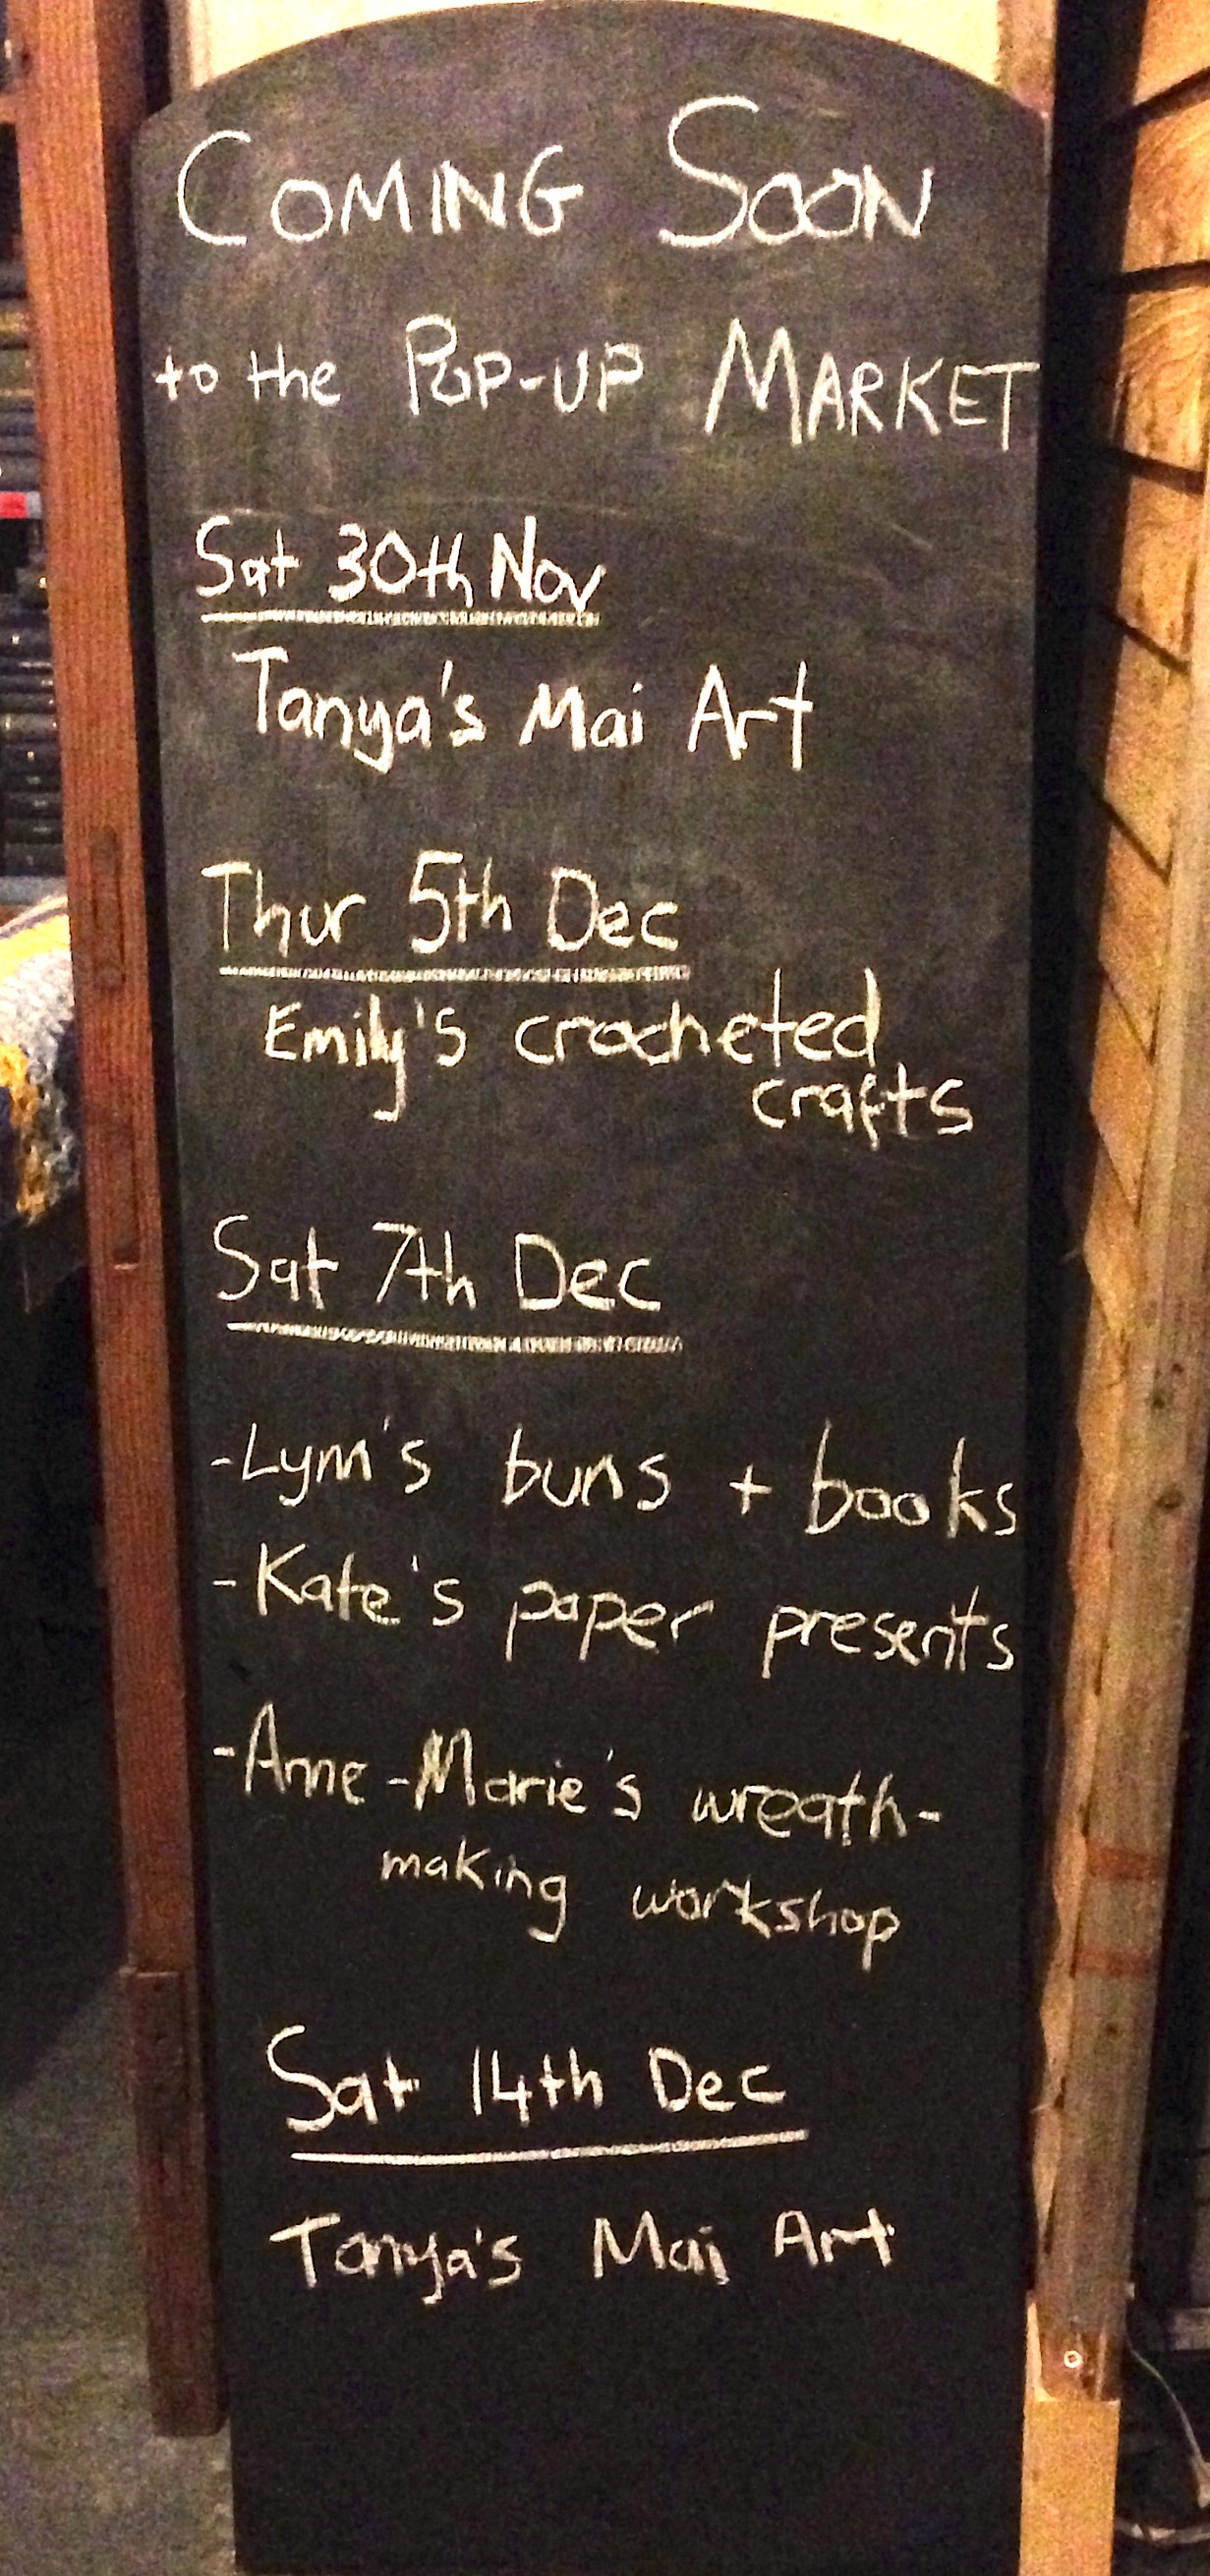 COMING SOON
to the POP-UP MARKET
Sat 30th Nov
Tanya's Mai Art
Thur 5th Dec
Emily's crocheted
crafts
Sat 7th Dec
-Lynn's buns + books
-Kate's paper presents
-Anne-Marie's wreath-
making workshop
Sat 14th Dec
Tanya's Mai Art